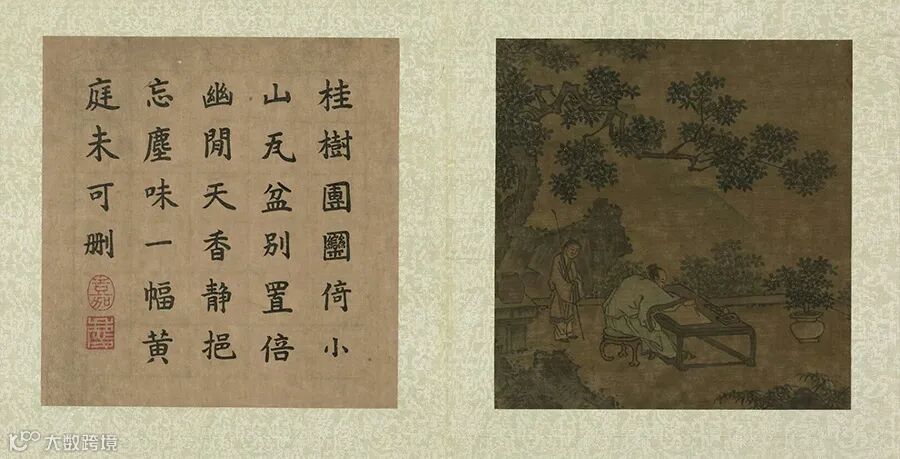 桂樹團圞倚小
山瓦盆別置倍
幽閒天香靜挹
忘塵味一幅黃
庭未可删
大数跨境